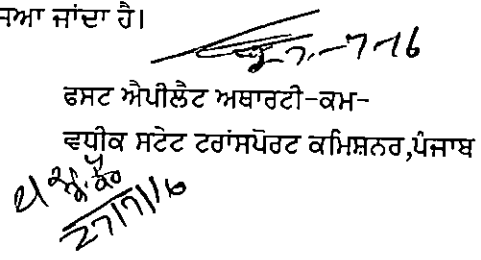 ਜਆ ਜਾਂਦਾ ਹੈ।
27-7-16
ਫਸਟ ਐਪੀਲੈਟ ਅਥਾਰਟੀ-ਕਮ-
ਵਧੀਕ ਸਟੇਟ ਟਰਾਂਸਪੋਰਟ ਕਮਿਸ਼ਨਰ,ਪੰਜਾਬ
27/7/16